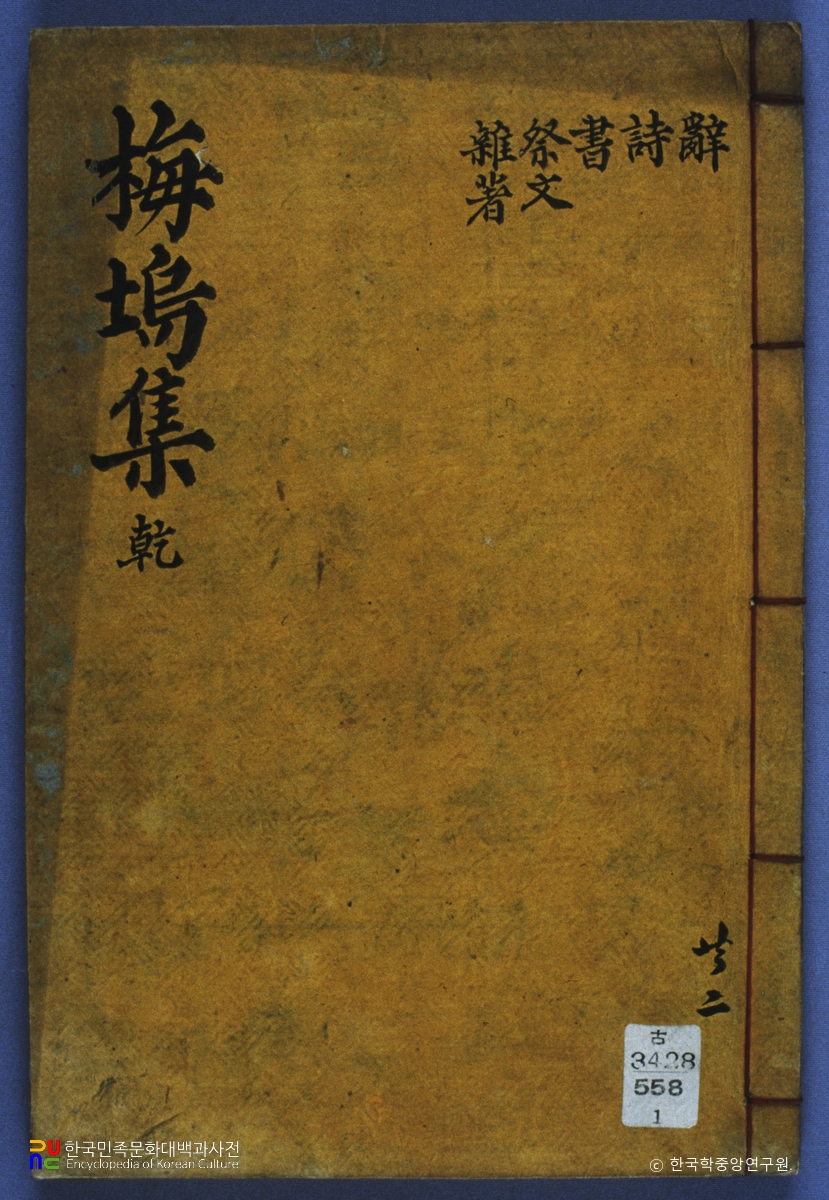 辭
詩
書
祭文
雜著
梅塢集 乾
共二
古
3428
558
1
한국민족문화대백과사전
Encyclopedia of Korean Culture
ⓒ 한국학중앙연구원